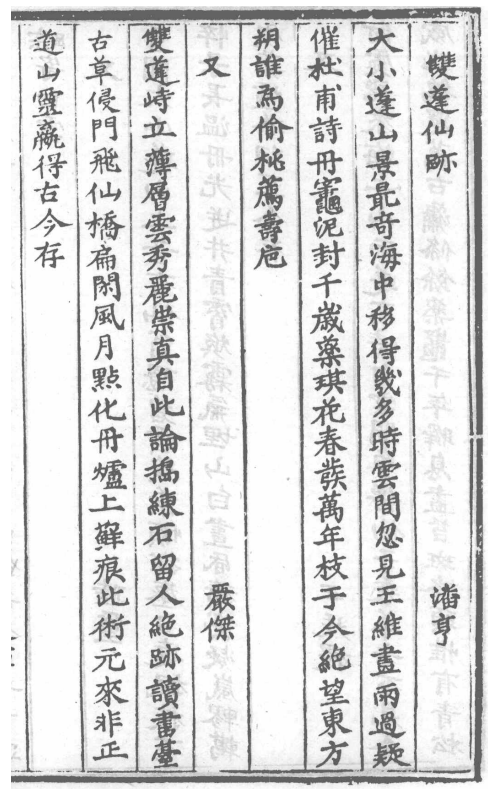 雙蓬仙跡　潘亨
大小蓬山景最竒海中移得幾多時雲間忽見王維畫雨過疑
催杜甫詩丹竈泥封千歲藥琪花春發萬年枝于今絶望東方
朔誰爲偷桃薦壽卮
又　嚴傑
雙蓬峙立薄層雲秀麗崇真自此論搗練石留人絶跡讀書臺
古草侵門飛仙橋扁閑風月點化丹爐上蘚痕此術元來非正
道山靈贏得古今存